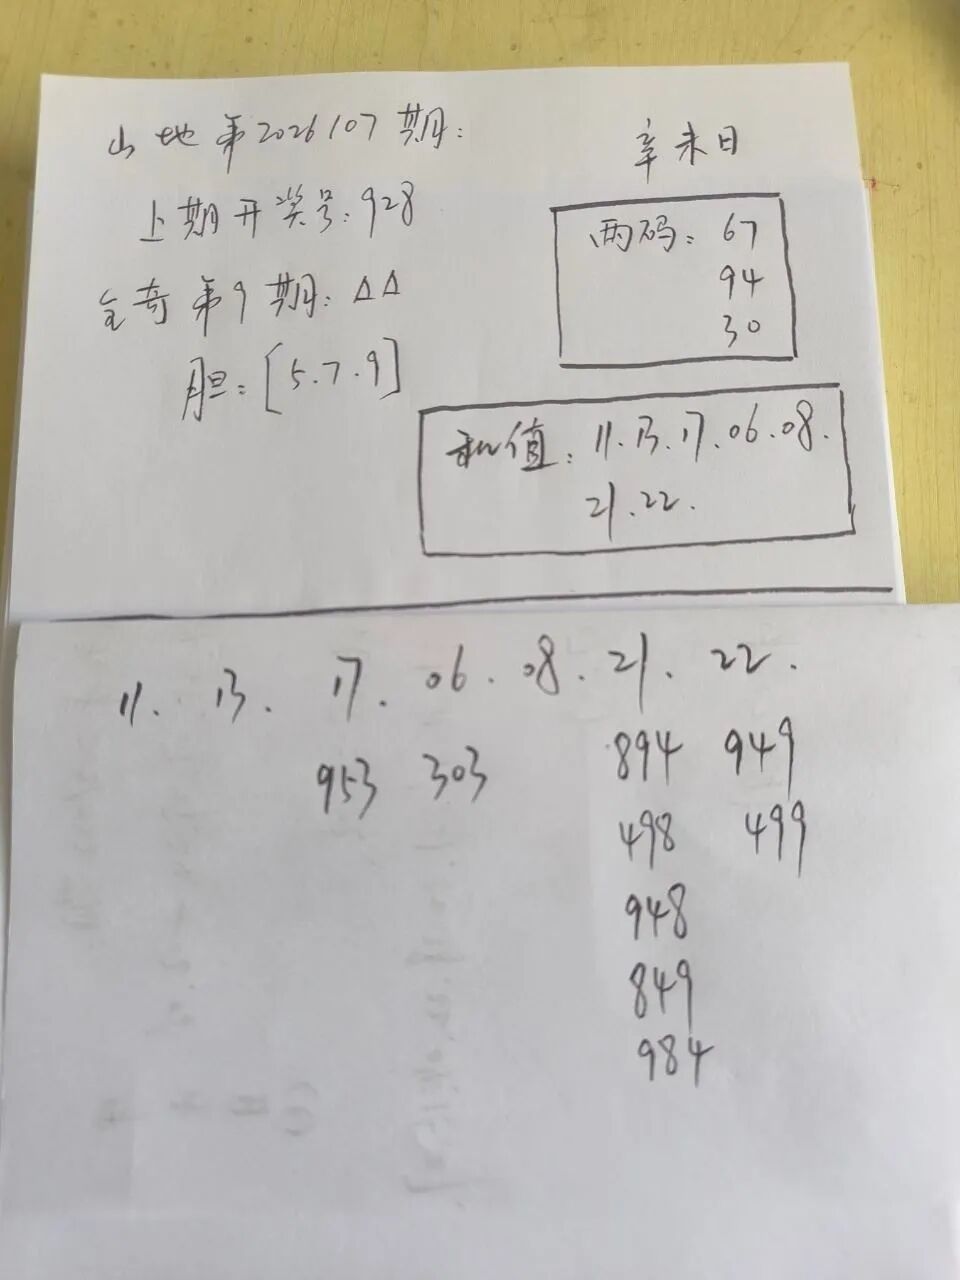 山地第2026107期:
辛未日
上期开奖号:928
两码:67
94
30
全奇第9期:△△
胆:[5.7.9]
和值:11.13.17.06.08.
21.22.
11. 13. 17. 06. 08. 21. 22.
953 303 894 949
498 499
948
849
984